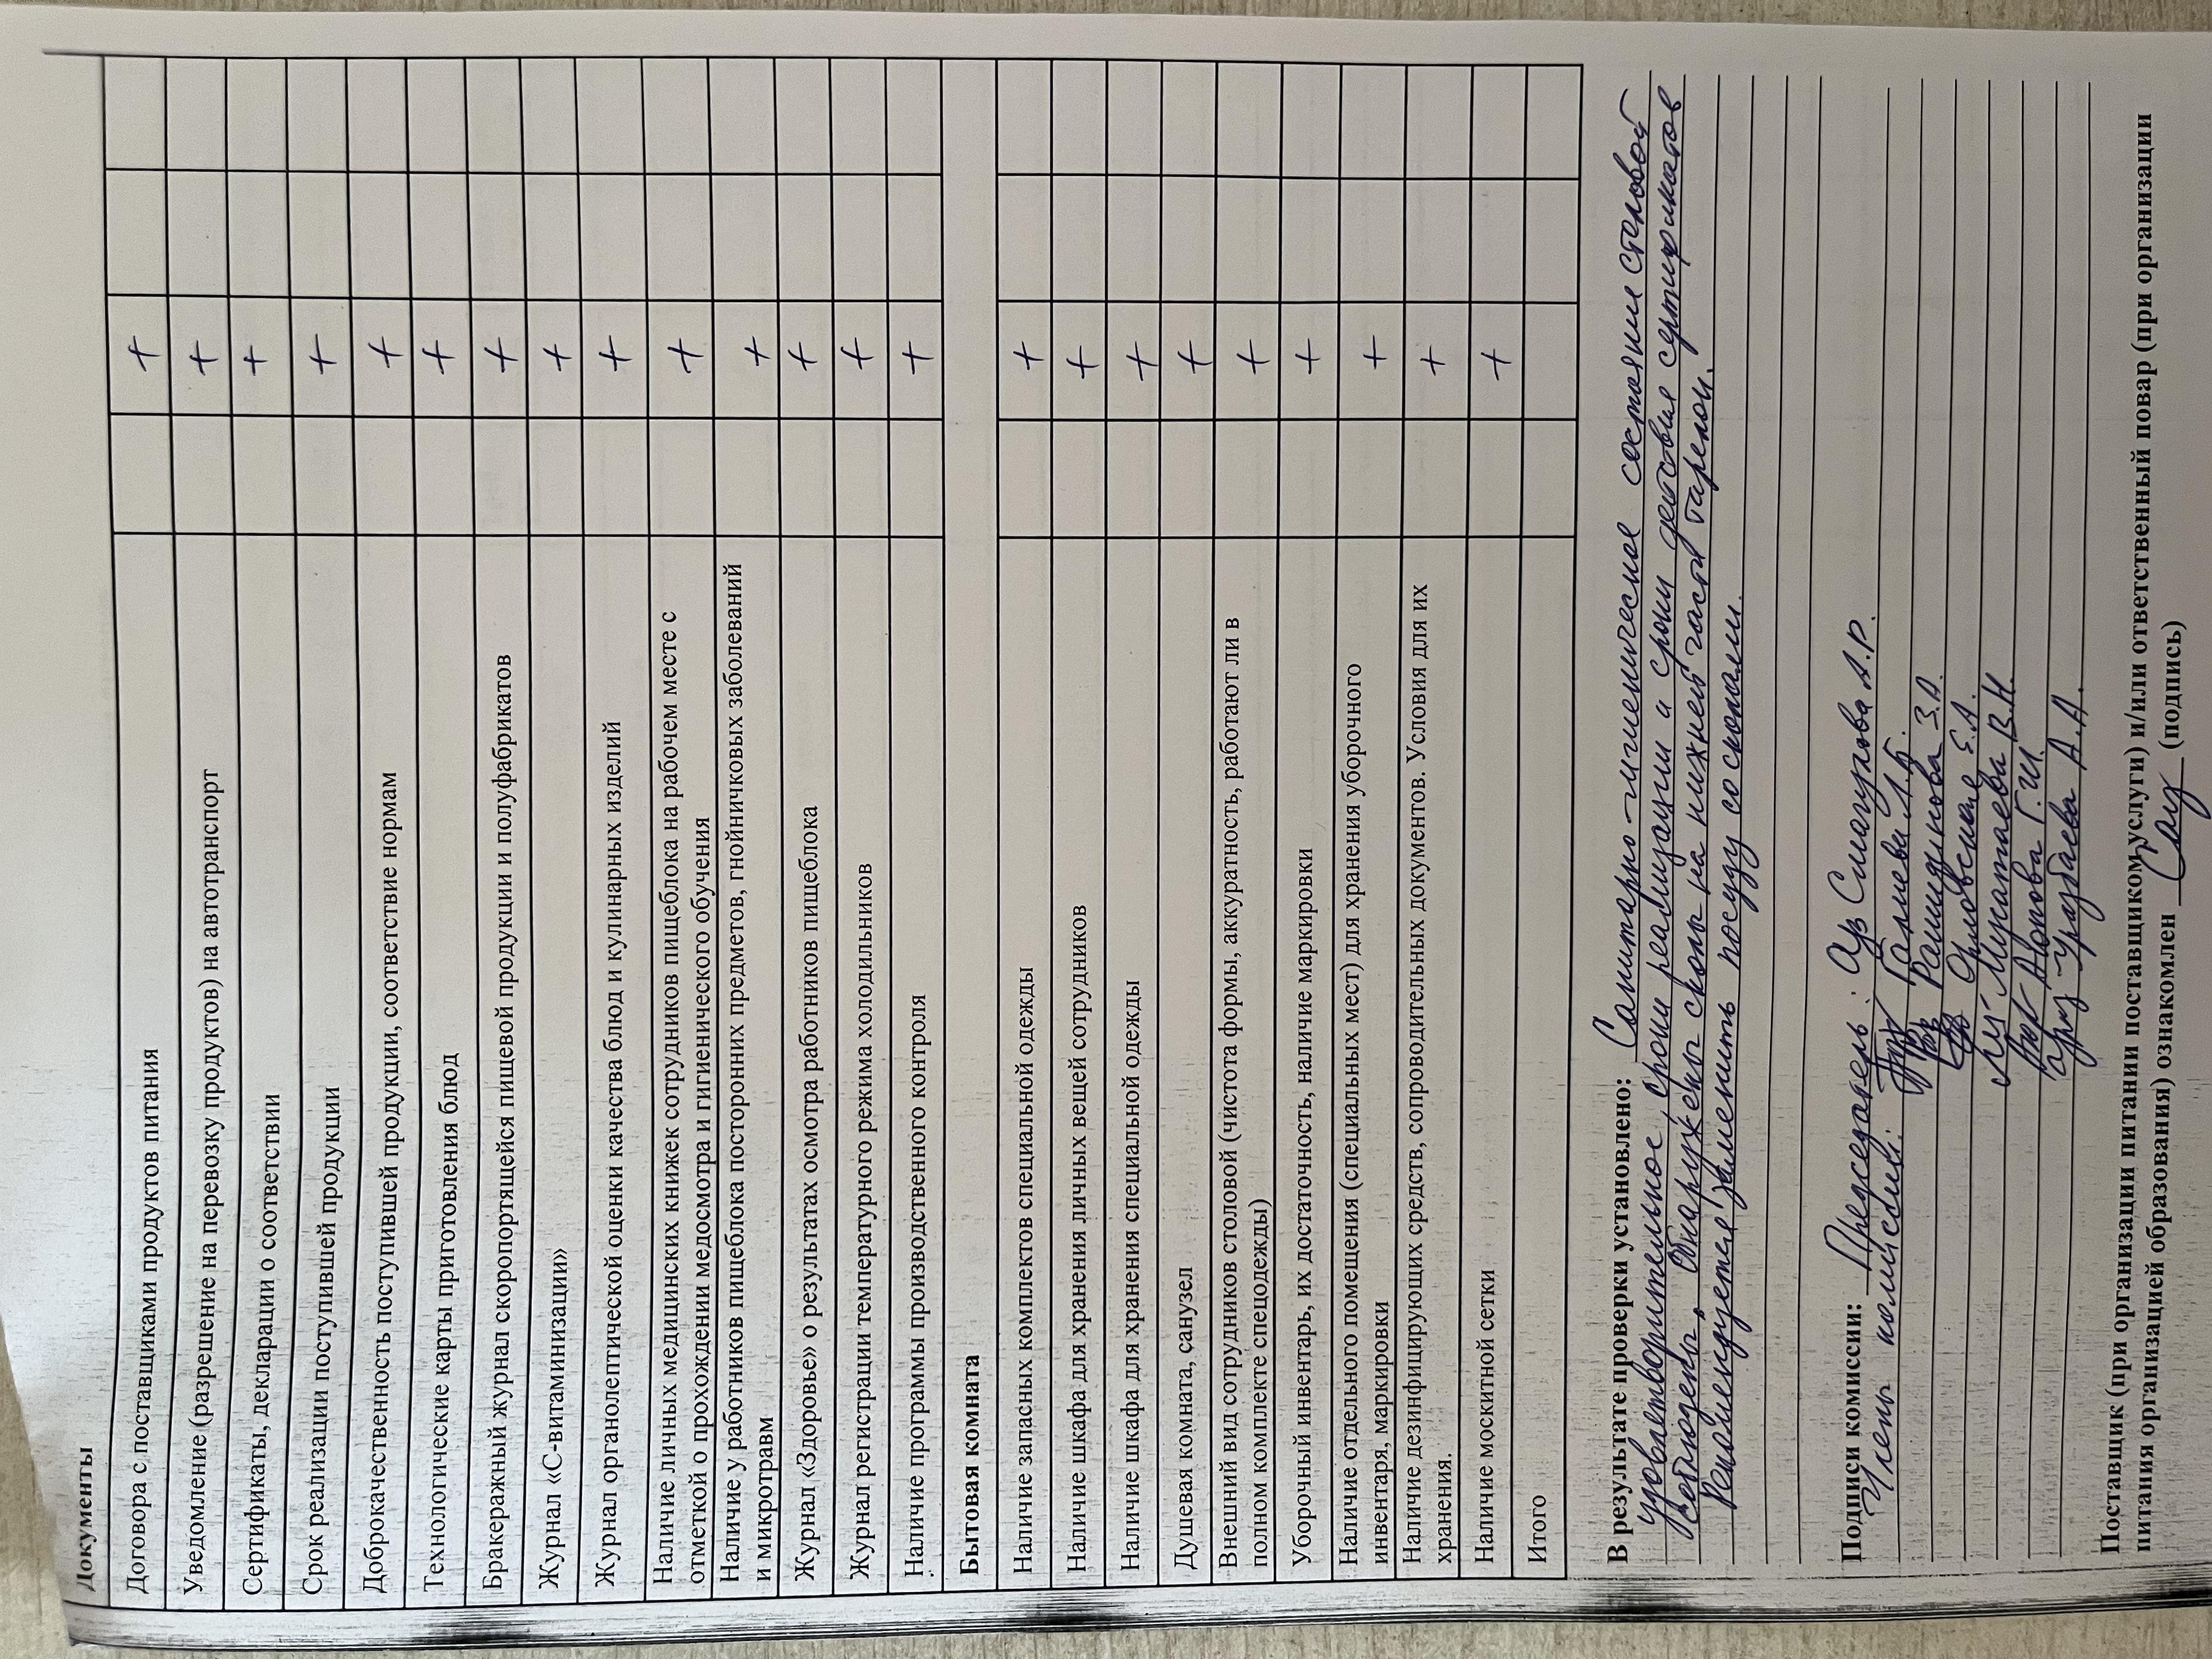 Документы
Договора с поставщиками продуктов питания +
Уведомление (разрешение на перевозку продуктов) на автотранспорт +
Сертификаты, декларации о соответствии +
Срок реализации поступившей продукции +
Доброкачественность поступившей продукции, соответствие нормам +
Технологические карты приготовления блюд +
Бракеражный журнал скоропортящейся пищевой продукции и полуфабрикатов +
Журнал «С-витаминизации» +
Журнал органолептической оценки качества блюд и кулинарных изделий +
Наличие личных медицинских книжек сотрудников пищеблока на рабочем месте с +
отметкой о прохождении медосмотра и гигиенического обучения
Наличие у работников пищеблока посторонних предметов, гнойничковых заболеваний +
и микротравм
Журнал «Здоровье» о результатах осмотра работников пищеблока +
Журнал регистрации температурного режима холодильников +
Наличие программы производственного контроля +
Бытовая комната
Наличие запасных комплектов специальной одежды +
Наличие шкафа для хранения личных вещей сотрудников +
Наличие шкафа для хранения специальной одежды +
Душевая комната, санузел +
Внешний вид сотрудников столовой (чистота формы, аккуратность, работают ли в +
полном комплекте спецодежды)
Уборочный инвентарь, их достаточность, наличие маркировки +
Наличие отдельного помещения (специальных мест) для хранения уборочного +
инвентаря, маркировки
Наличие дезинфицирующих средств, сопроводительных документов. Условия для их +
хранения.
Наличие москитной сетки +
Итого
В результате проверки установлено: Санитарно-гигиеническое состояние столовой
удовлетворительное, сроки реализации и сроки действия сертификатов
соблюдены. Обнаружены сколы на нижней части тарелки.
Рекомендуется заменить посуду со сколами.
Подписи комиссии: Председатель: Смагулова А.Р.
Члены комиссии: Галиева Л.Б.
Рашидинова З.А.
Орловская Е.А.
Мукатаева В.К.
Аюпова Г.Ш.
Уразбаева А.А.
Поставщик (при организации питании поставщиком услуги) и/или ответственный повар (при организации
питания организацией образования) ознакомлен (подпись)